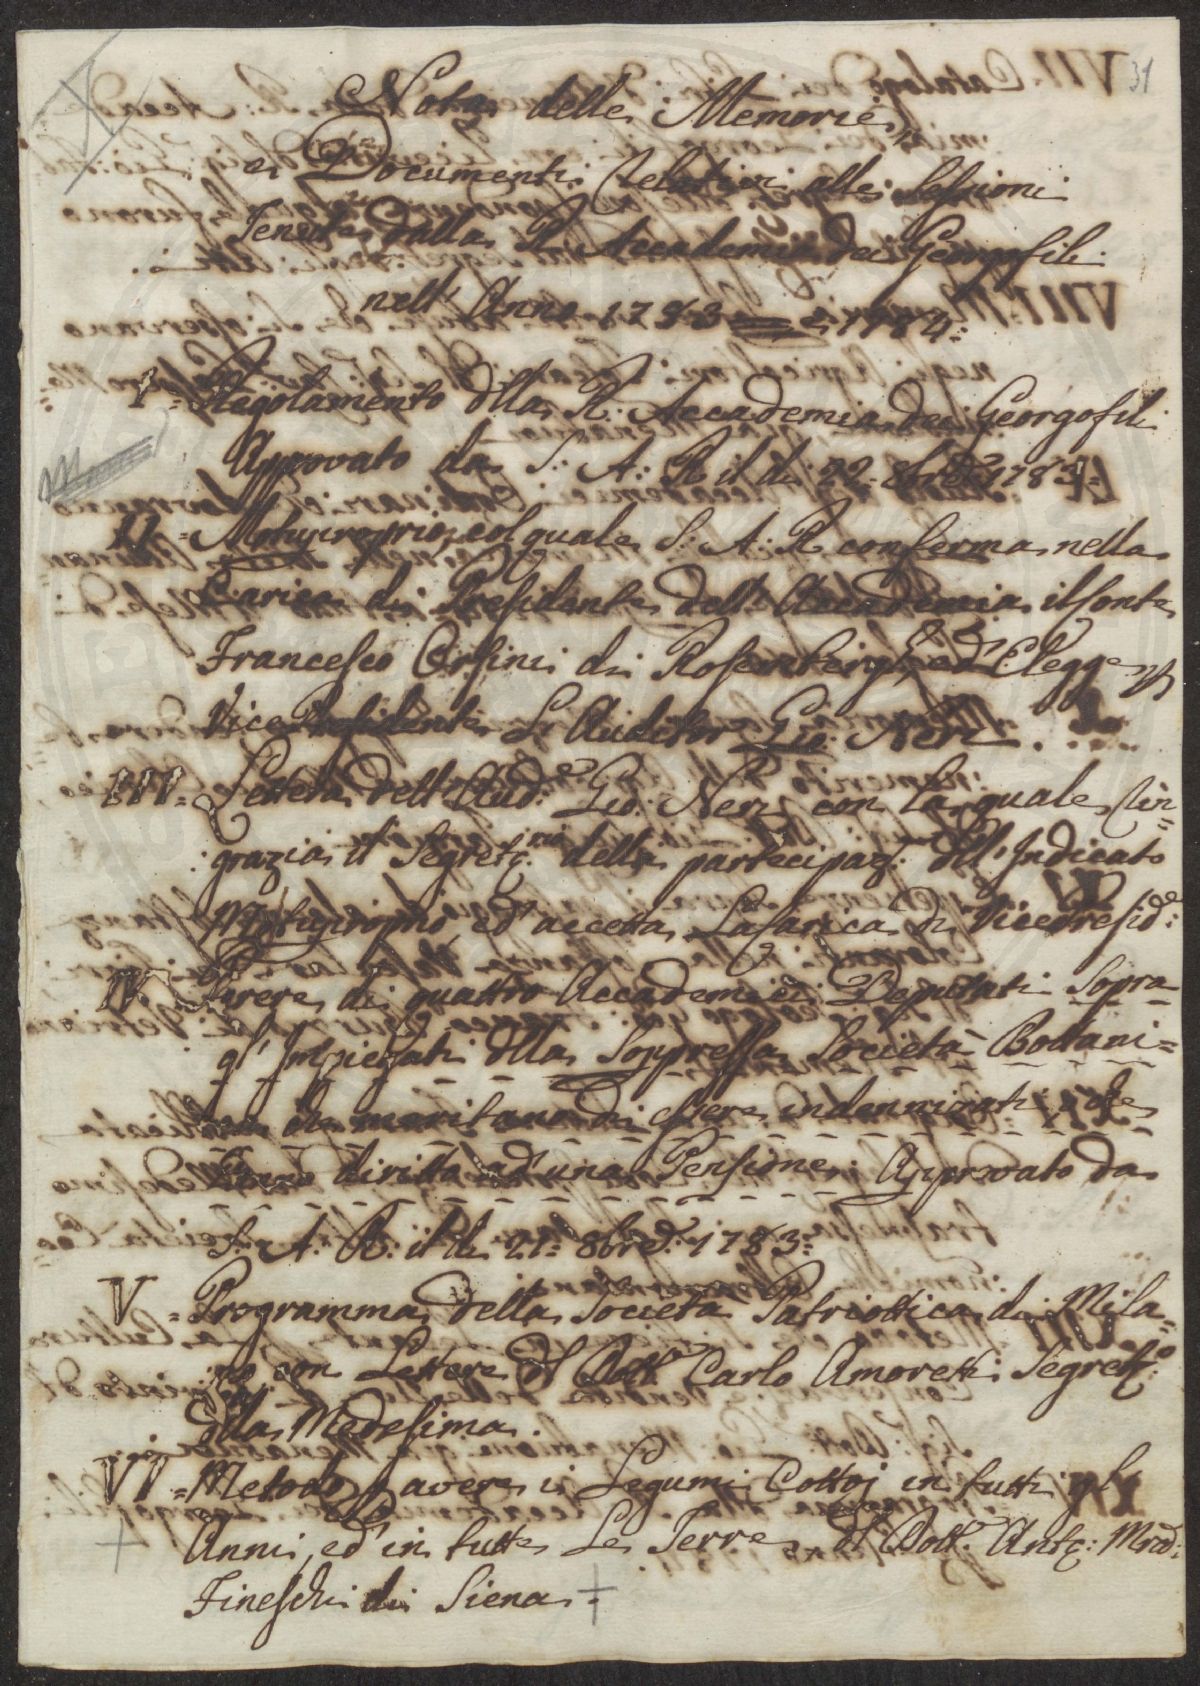 31
Nota delle Memorie,
e Documenti relativi alle Sessioni
Tenute dalla R. Accademia dei Georgofili
nell' Anno 1783 e 1784:
I = Regolamento dlla R: Accademia dei Georgofili
Approvato da S: A: R il dì 22. 8bre 1783=
II = Motuproprio, col quale S: A: R conferma nella
Carica di Presidente dell' Accademia il Conte
Francesco Orsini di Rosemberg, ed Elegge
Vice Presidente L'Auditor Gio: Neri.
III = Lettera dell' Aud.e Gio: Neri con la quale rin=
grazia il Segret: della partecipaz: dll' Indicato
Motuproprio, ed accetta La Carica di Vicepresid:e
IV = Parere di quattro Accademici Deputati Sopra
gl' Impiegati dlla Soppressa Società Botani=
ca che meritano di essere indennizati, e che
hanno diritto ad una Pensione: Approvato da
S: A: R: il dì 21= 8bre: 1783=
V = Programma della Società Patriottica di Mila=
no con Lettere dl Dott. Carlo Amoretti Segret:o
dlla Medesima.
VI = Metodo p avere i Legumi Cottoj in tutti gl'
Anni, ed in tutte Le Terre dl Dott. Ant: Mrã:
Fineschi di Siena.